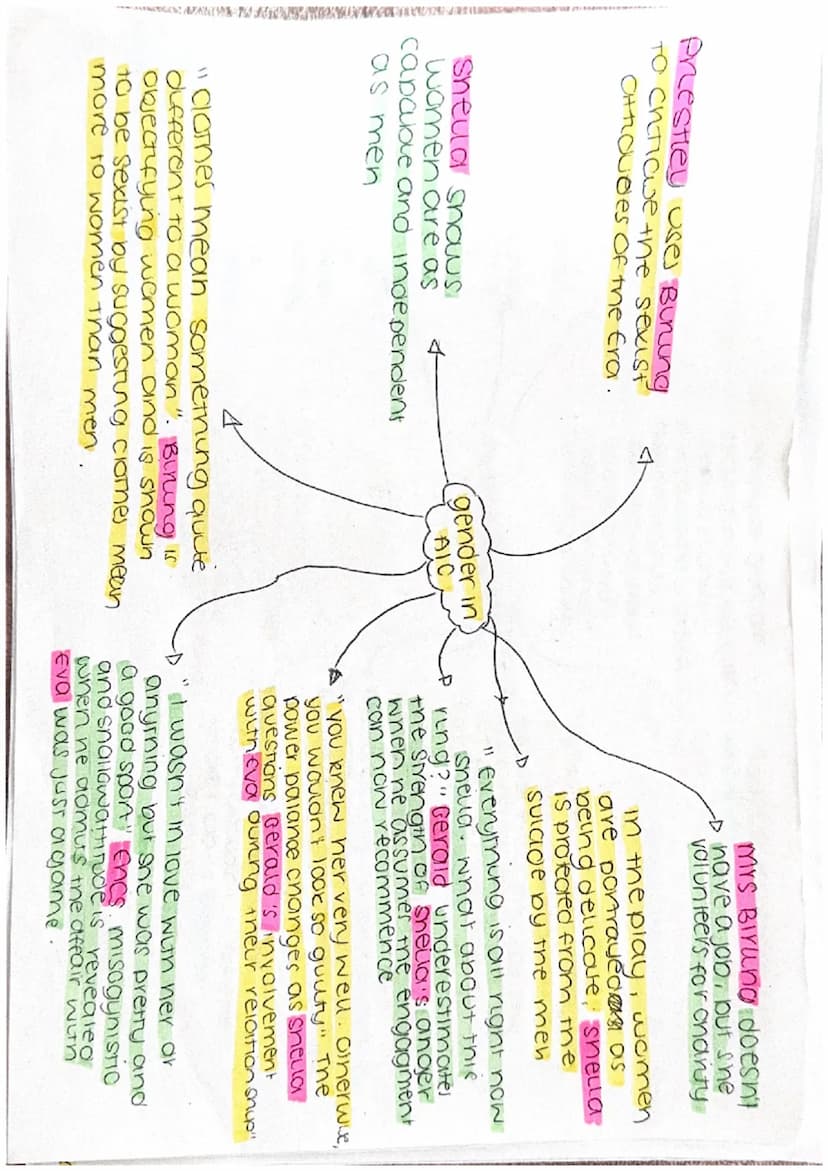 gender in
AIC
Priestley uses Birling
to critique the sexist
attitudes of the Era.
Sheila shows
women are as
capable and independent
as men
"clothes mean something quite
different to a woman". Birling is
objectifying women and is shown
to be sexist by suggesting clothes mean
more to women than men.
Mrs Birling doesn't
have a job, but she
volunteers for charity
In the play, women
are portrayed as
being delicate, Sheila
is proteted from the
suicide by the men
"Everything is all right now
Sheila. What about this
ring?" Gerald underestimates
the strength of Sheila's anger
when he assumes the engagment
can now recommence
"You knew her very well. Otherwise,
you wouldn't look so guilty" The
power balance changes as Sheila
questions Gerald's involvement
with Eva during their relationship"
"I wasn't in love with her or
anything but she was pretty and
a good sport" Erics misogynistic
and shallow attitude is revealed
when he admits the affair with
Eva was just a game.